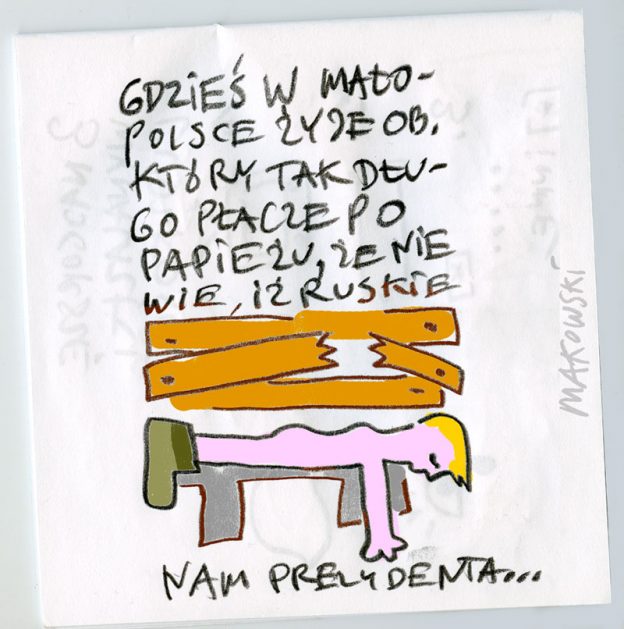 GDZIEŚ W MAŁO-
POLSCE ŻYJE OB.
KTÓRY TAK DŁU-
GO PŁACZE PO
PAPIEŻU, ŻE NIE
WIE, IŻ RUSKIE
NAM PREZYDENTA...
MAKOWSKI